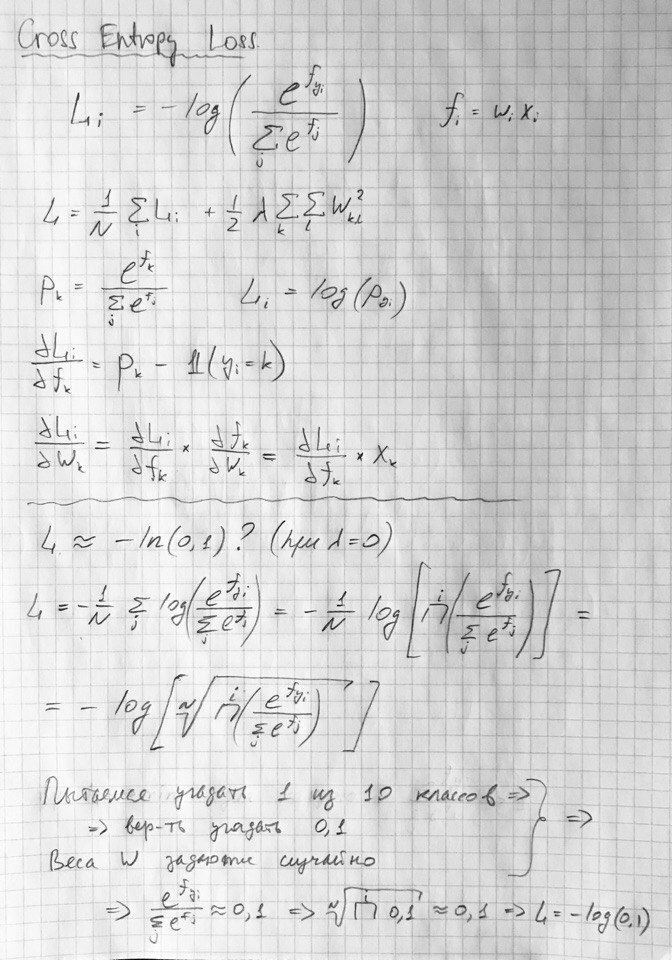 Cross Entropy Loss.
L_i = -log( e^{f_{y_i}} / ∑_j e^{f_j} )    f_i = w_i x_i
L = 1/N ∑_i L_i + 1/2 λ ∑_k ∑_l W_{kl}^2
p_k = e^{f_k} / ∑_j e^{f_j}    L_i = log(p_{y_i})
∂L_i/∂f_k = p_k - 𝟙(y_i = k)
∂L_i/∂W_k = ∂L_i/∂f_k * ∂f_k/∂W_k = ∂L_i/∂f_k * x_k
L ≈ -ln(0,1)? (при λ=0)
L = -1/N ∑_j log( e^{f_{y_i}} / ∑_j e^{f_j} ) = -1/N log[ ∏^i ( e^{f_{y_i}} / ∑_j e^{f_j} ) ] =
= - log[ ᴺ√( ∏^i ( e^{f_{y_i}} / ∑_j e^{f_j} ) ) ]
Пытаемся угадать 1 из 10 классов =>
=> вер-ть угадать 0,1 } =>
Веса W задаются случайно
=> e^{f_{y_i}} / ∑_j e^{f_j} ≈ 0,1 => ᴺ√( ∏^i 0,1 ) ≈ 0,1 => L = -log(0,1)